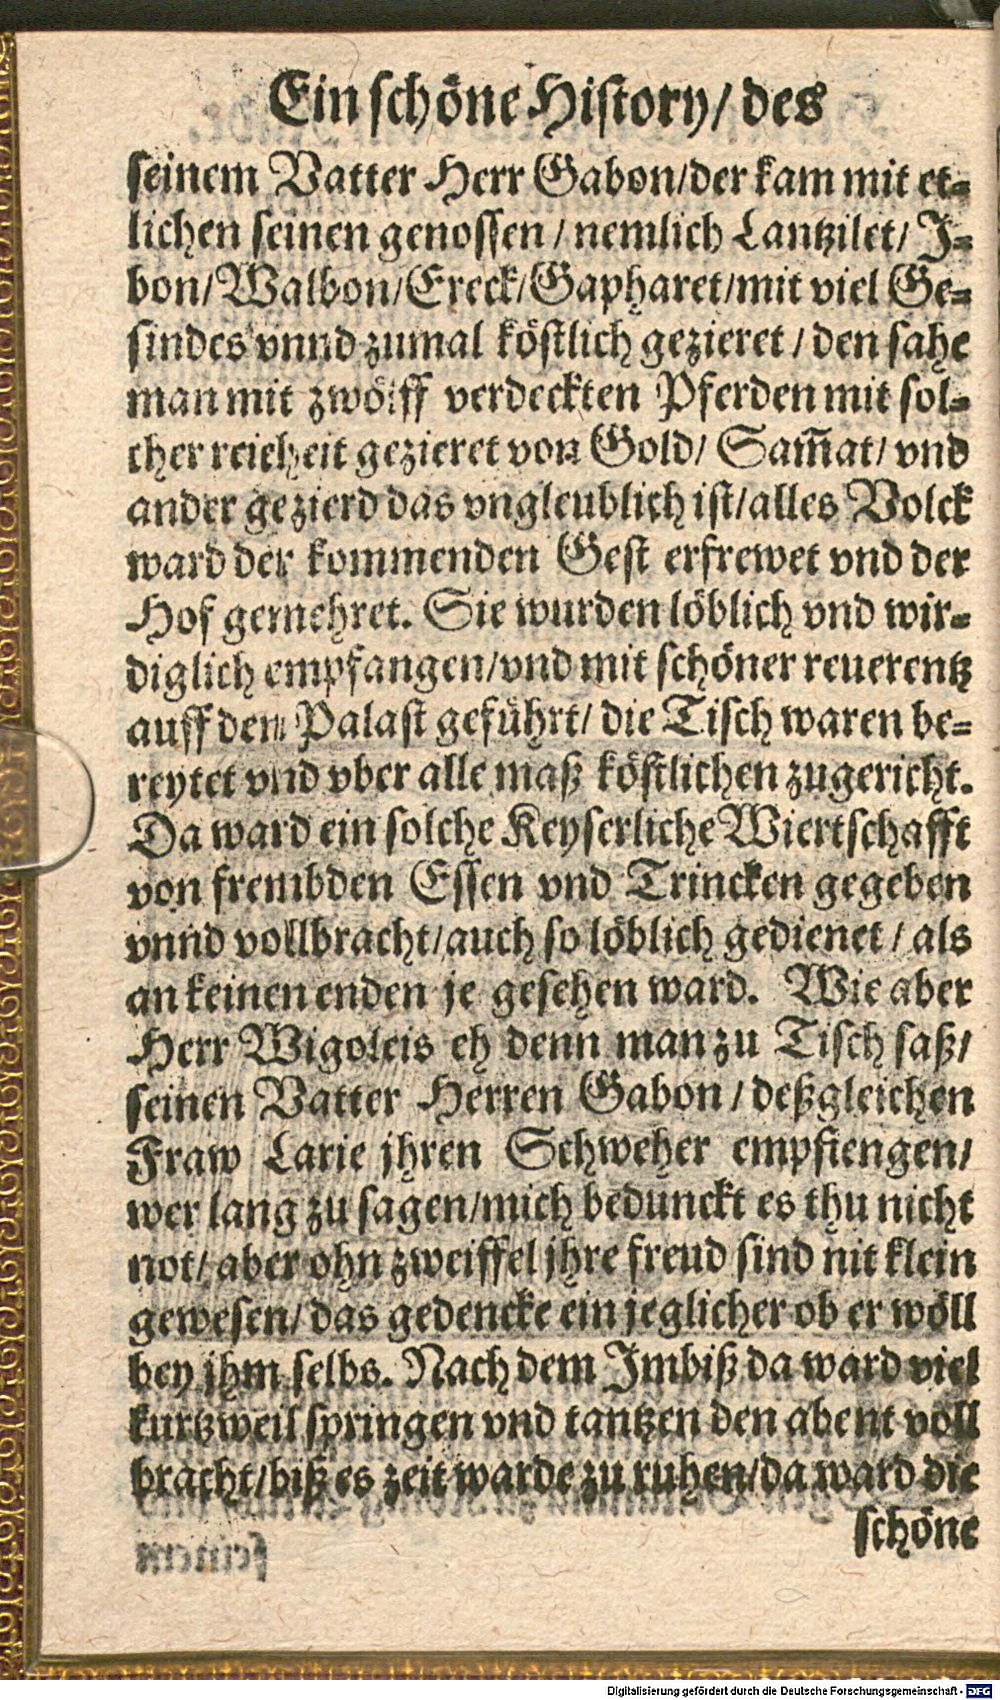 Ein schöne History/ des
seinem Vatter Herr Gabon/der kam mit et-
lichen seinen genossen / nemlich Lantzilet/ J-
bon/Walbon/Ereck/Gapharet/mit viel Ge-
sindes vnnd zumal köstlich gezieret / den sahe
man mit zwölff verdeckten Pferden mit sol-
cher reicheit gezieret von Gold/ Sam̄at/ vnd
ander gezierd das vngleublich ist/alles Volck
ward der kommenden Gest erfrewet vnd der
Hof gemehret. Sie wurden löblich vnd wir-
diglich empfangen/vnd mit schöner reuerentz
auff den Palast geführt/ die Tisch waren be-
reytet vnd vber alle maß köstlichen zugericht.
Da ward ein solche Keyserliche Wiertschafft
von frembden Essen vnd Trincken gegeben
vnnd vollbracht/auch so löblich gedienet / als
an keinen enden je gesehen ward. Wie aber
Herr Wigoleis eh denn man zu Tisch saß/
seinen Vatter Herren Gabon / deßgleichen
Fraw Larie jhren Schweher empfiengen/
wer lang zu sagen/mich bedunckt es thu nicht
not/ aber ohn zweiffel jhre freud sind nit klein
gewesen/ das gedencke ein jeglicher ob er wöll
bey jhm selbs. Nach dem Jmbiß da ward viel
kurtzweil springen vnd tantzen den abent voll
bracht/biß es zeit warde zu ruhen/da ward die
schöne
Digitalisierung gefördert durch die Deutsche Forschungsgemeinschaft - DFG